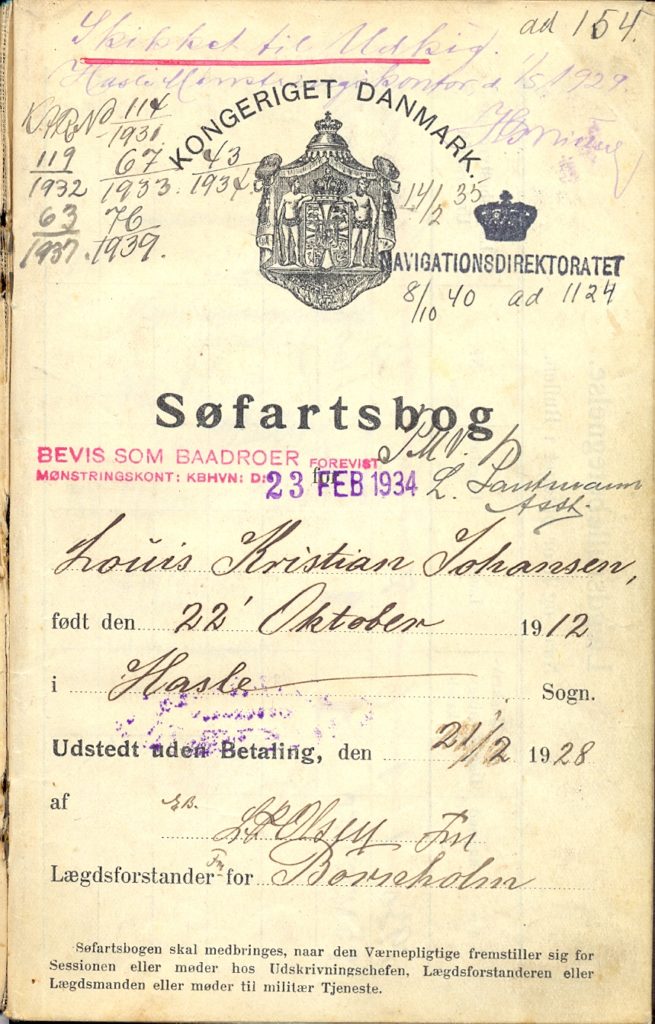 ad 154.
Skikket til Udkig.
Hasle Mønstringskontor, d. 1/5 1929.
KONGERIGET DANMARK.
114
1931
119 67 43
1932 1933. 1934.
63 76
1937. 1939.
14/2 35
NAVIGATIONSDIREKTORATET
8/10 40 ad 1124
Søfartsbog
BEVIS SOM BAADROER FOREVIST
MØNSTRINGSKONT: KBHVN: D:
23 FEB 1934
for
L.
Asst.
Louis Kristian Johansen,
født den 22' Oktober 1912
i Hasle Sogn.
Udstedt uden Betaling, den 21/2 1928
af
Olsen Fm
Lægdsforstander Fm for Bornholm
Søfartsbogen skal medbringes, naar den Værnepligtige fremstiller sig for
Sessionen eller møder hos Udskrivningschefen, Lægdsforstanderen eller
Lægdsmanden eller møder til militær Tjeneste.